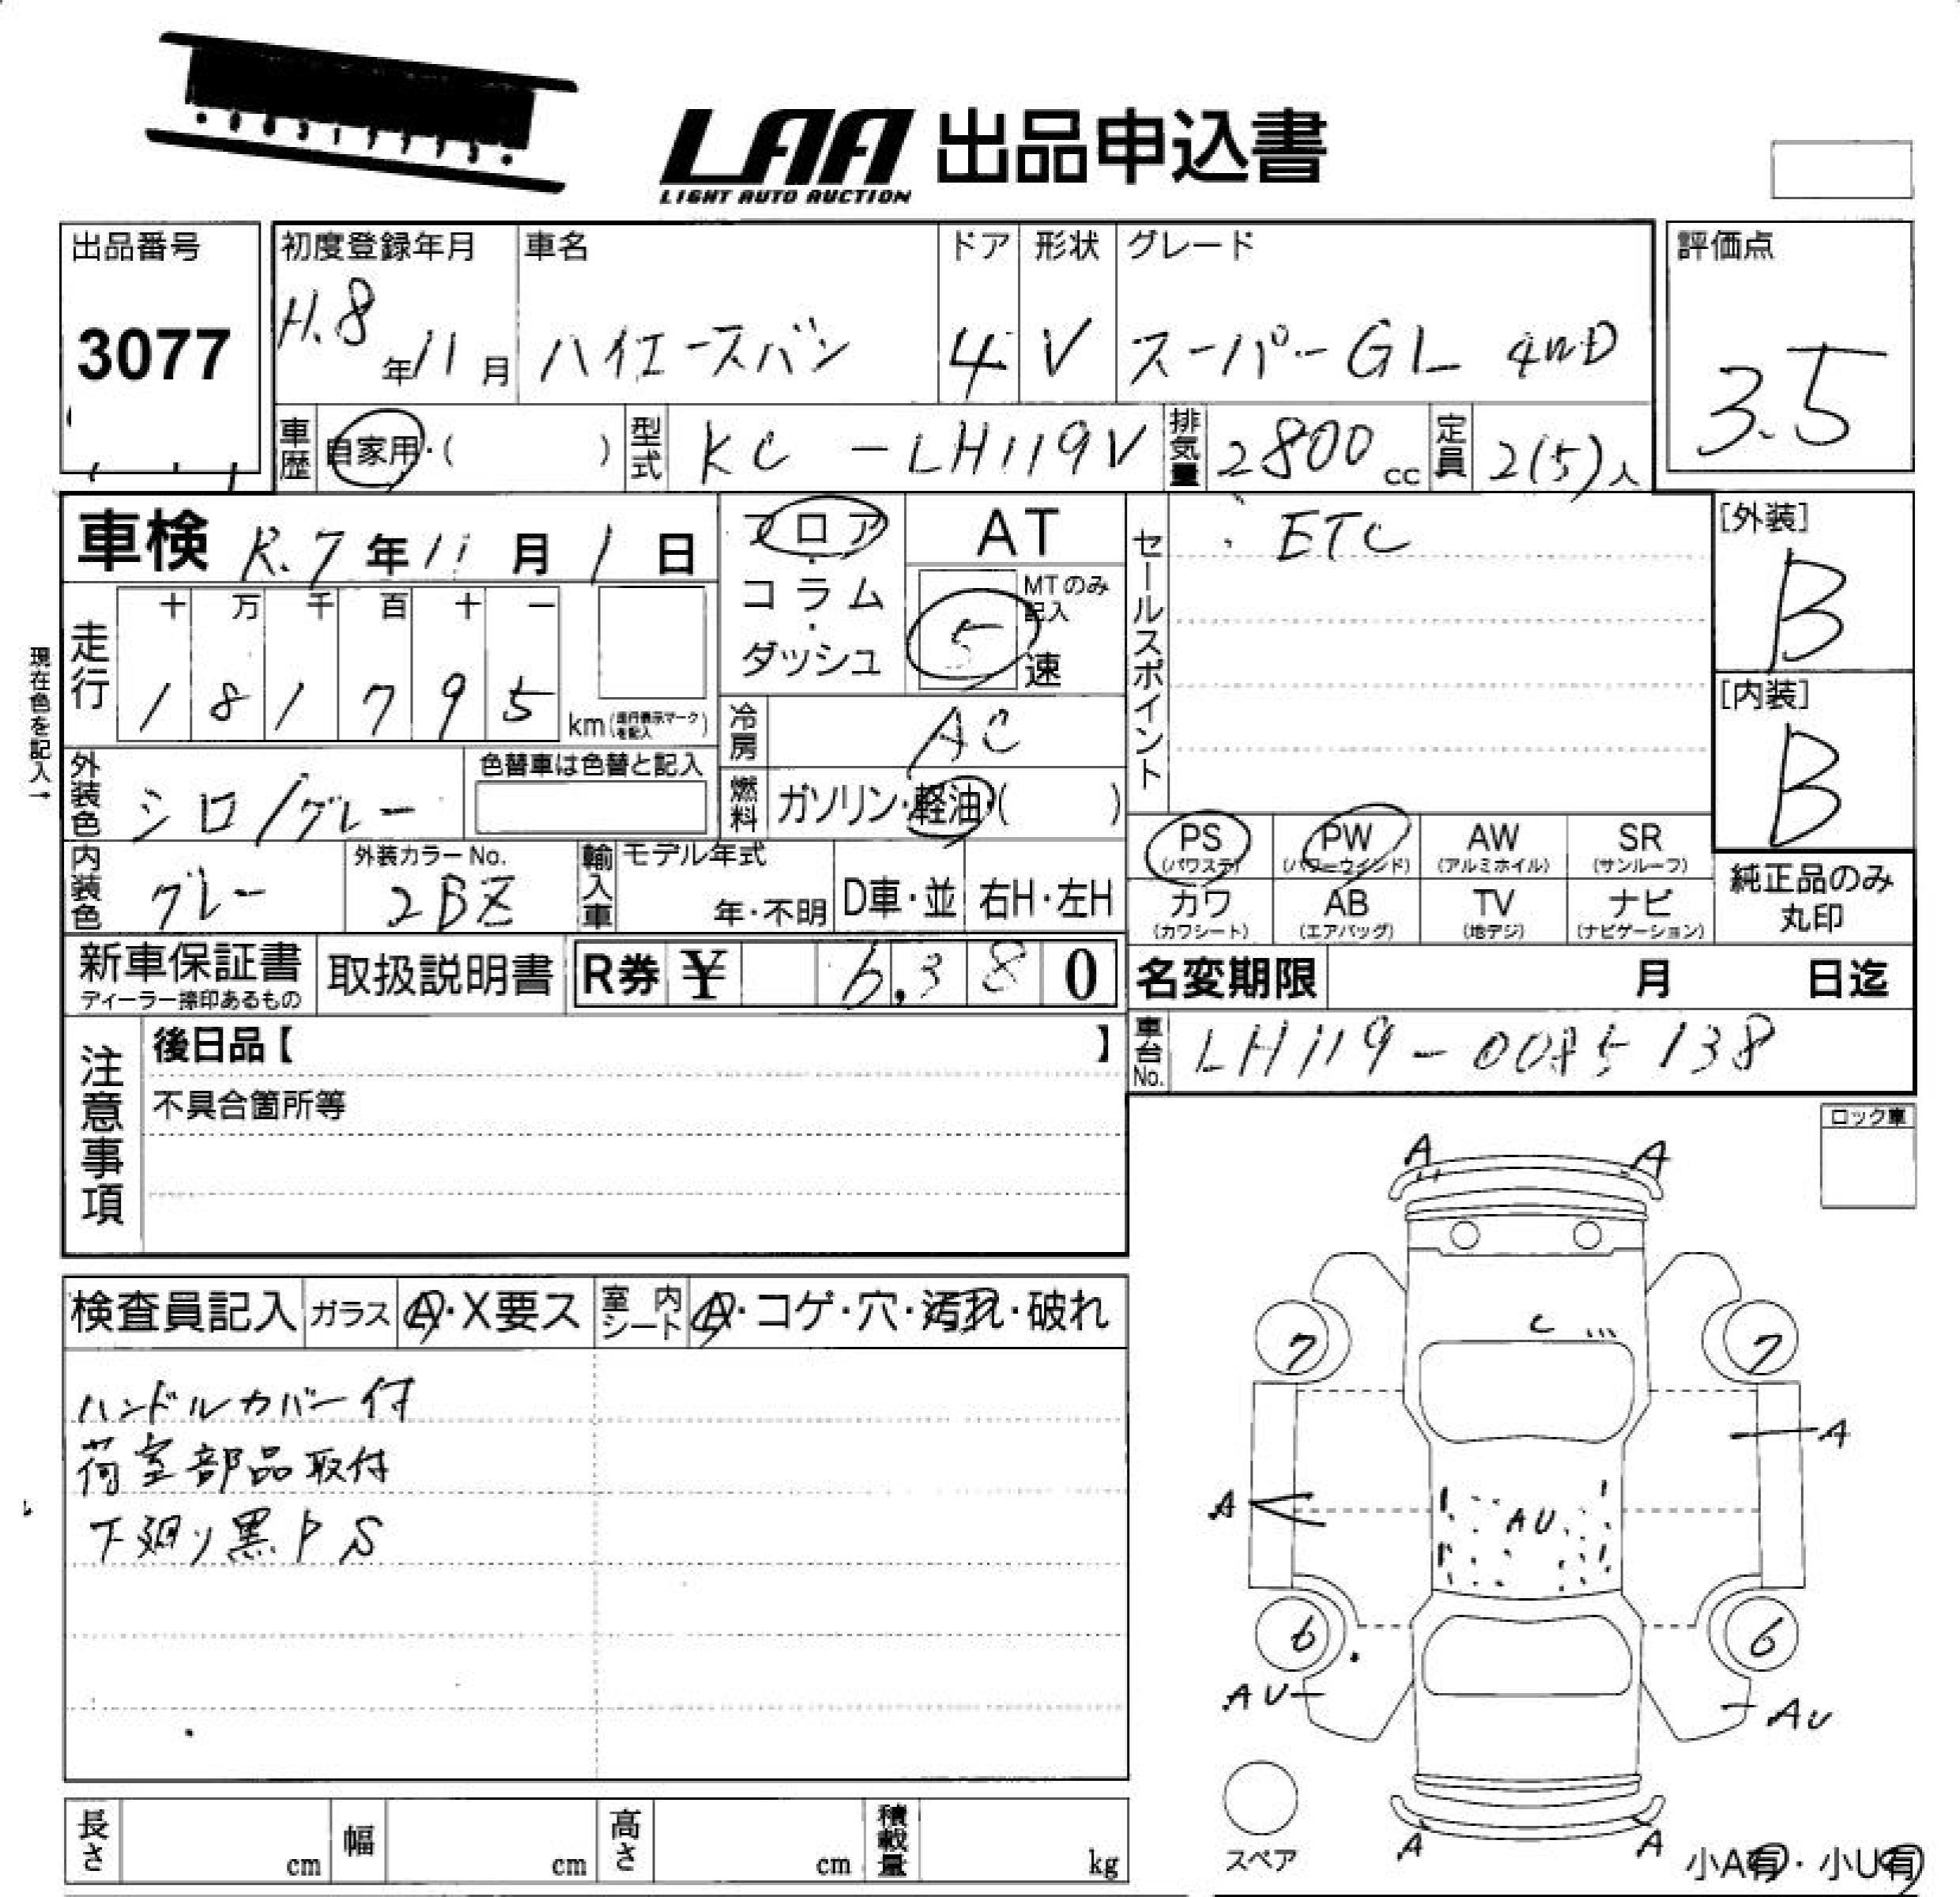 LAA 出品申込書
LIGHT AUTO AUCTION
出品番号
3077
初度登録年月
H.8年11月
車名
ハイエースバン
ドア
4
形状
V
グレード
スーパーGL 4WD
評価点
3.5
車歴
自家用・( )
型式
KC -LH119V
排気量
2800cc
定員
2(5)人
車検 R.7年11月1日
フロア・コラム・ダッシュ
AT
MTのみ記入
5速
セールスポイント
ETC
[外装]
B
[内装]
B
現在色を記入→
走行
十 万 千 百 十 一
1 8 1 7 9 5
km(走行表示マークを記入)
冷房
AC
外装色
シロ/グレー
色替車は色替と記入
燃料
ガソリン・軽油・( )
PS (パワステ)
PW (パワーウインド)
AW (アルミホイル)
SR (サンルーフ)
内装色
グレー
外装カラーNo.
2BZ
輸入車
モデル年式
年・不明
D車・並
右H・左H
カワ (カワシート)
AB (エアバッグ)
TV (地デジ)
ナビ (ナビゲーション)
純正品のみ
丸印
新車保証書
ディーラー捺印あるもの
取扱説明書
R券 ¥ 6,380
名変期限 月 日迄
車台No.
LH119-0085138
注意事項
後日品【 】
不具合箇所等
ロック車
検査員記入
ガラス
A・X要ス
室内シート
A・コゲ・穴・汚れ・破れ
ハンドルカバー付
荷室部品取付
下廻り黒 P S
A A
C
7 7
A
A
AU
6 6
AU
AU
A A
スペア
小A有・小U有
長さ cm
幅 cm
高さ cm
積載量 kg